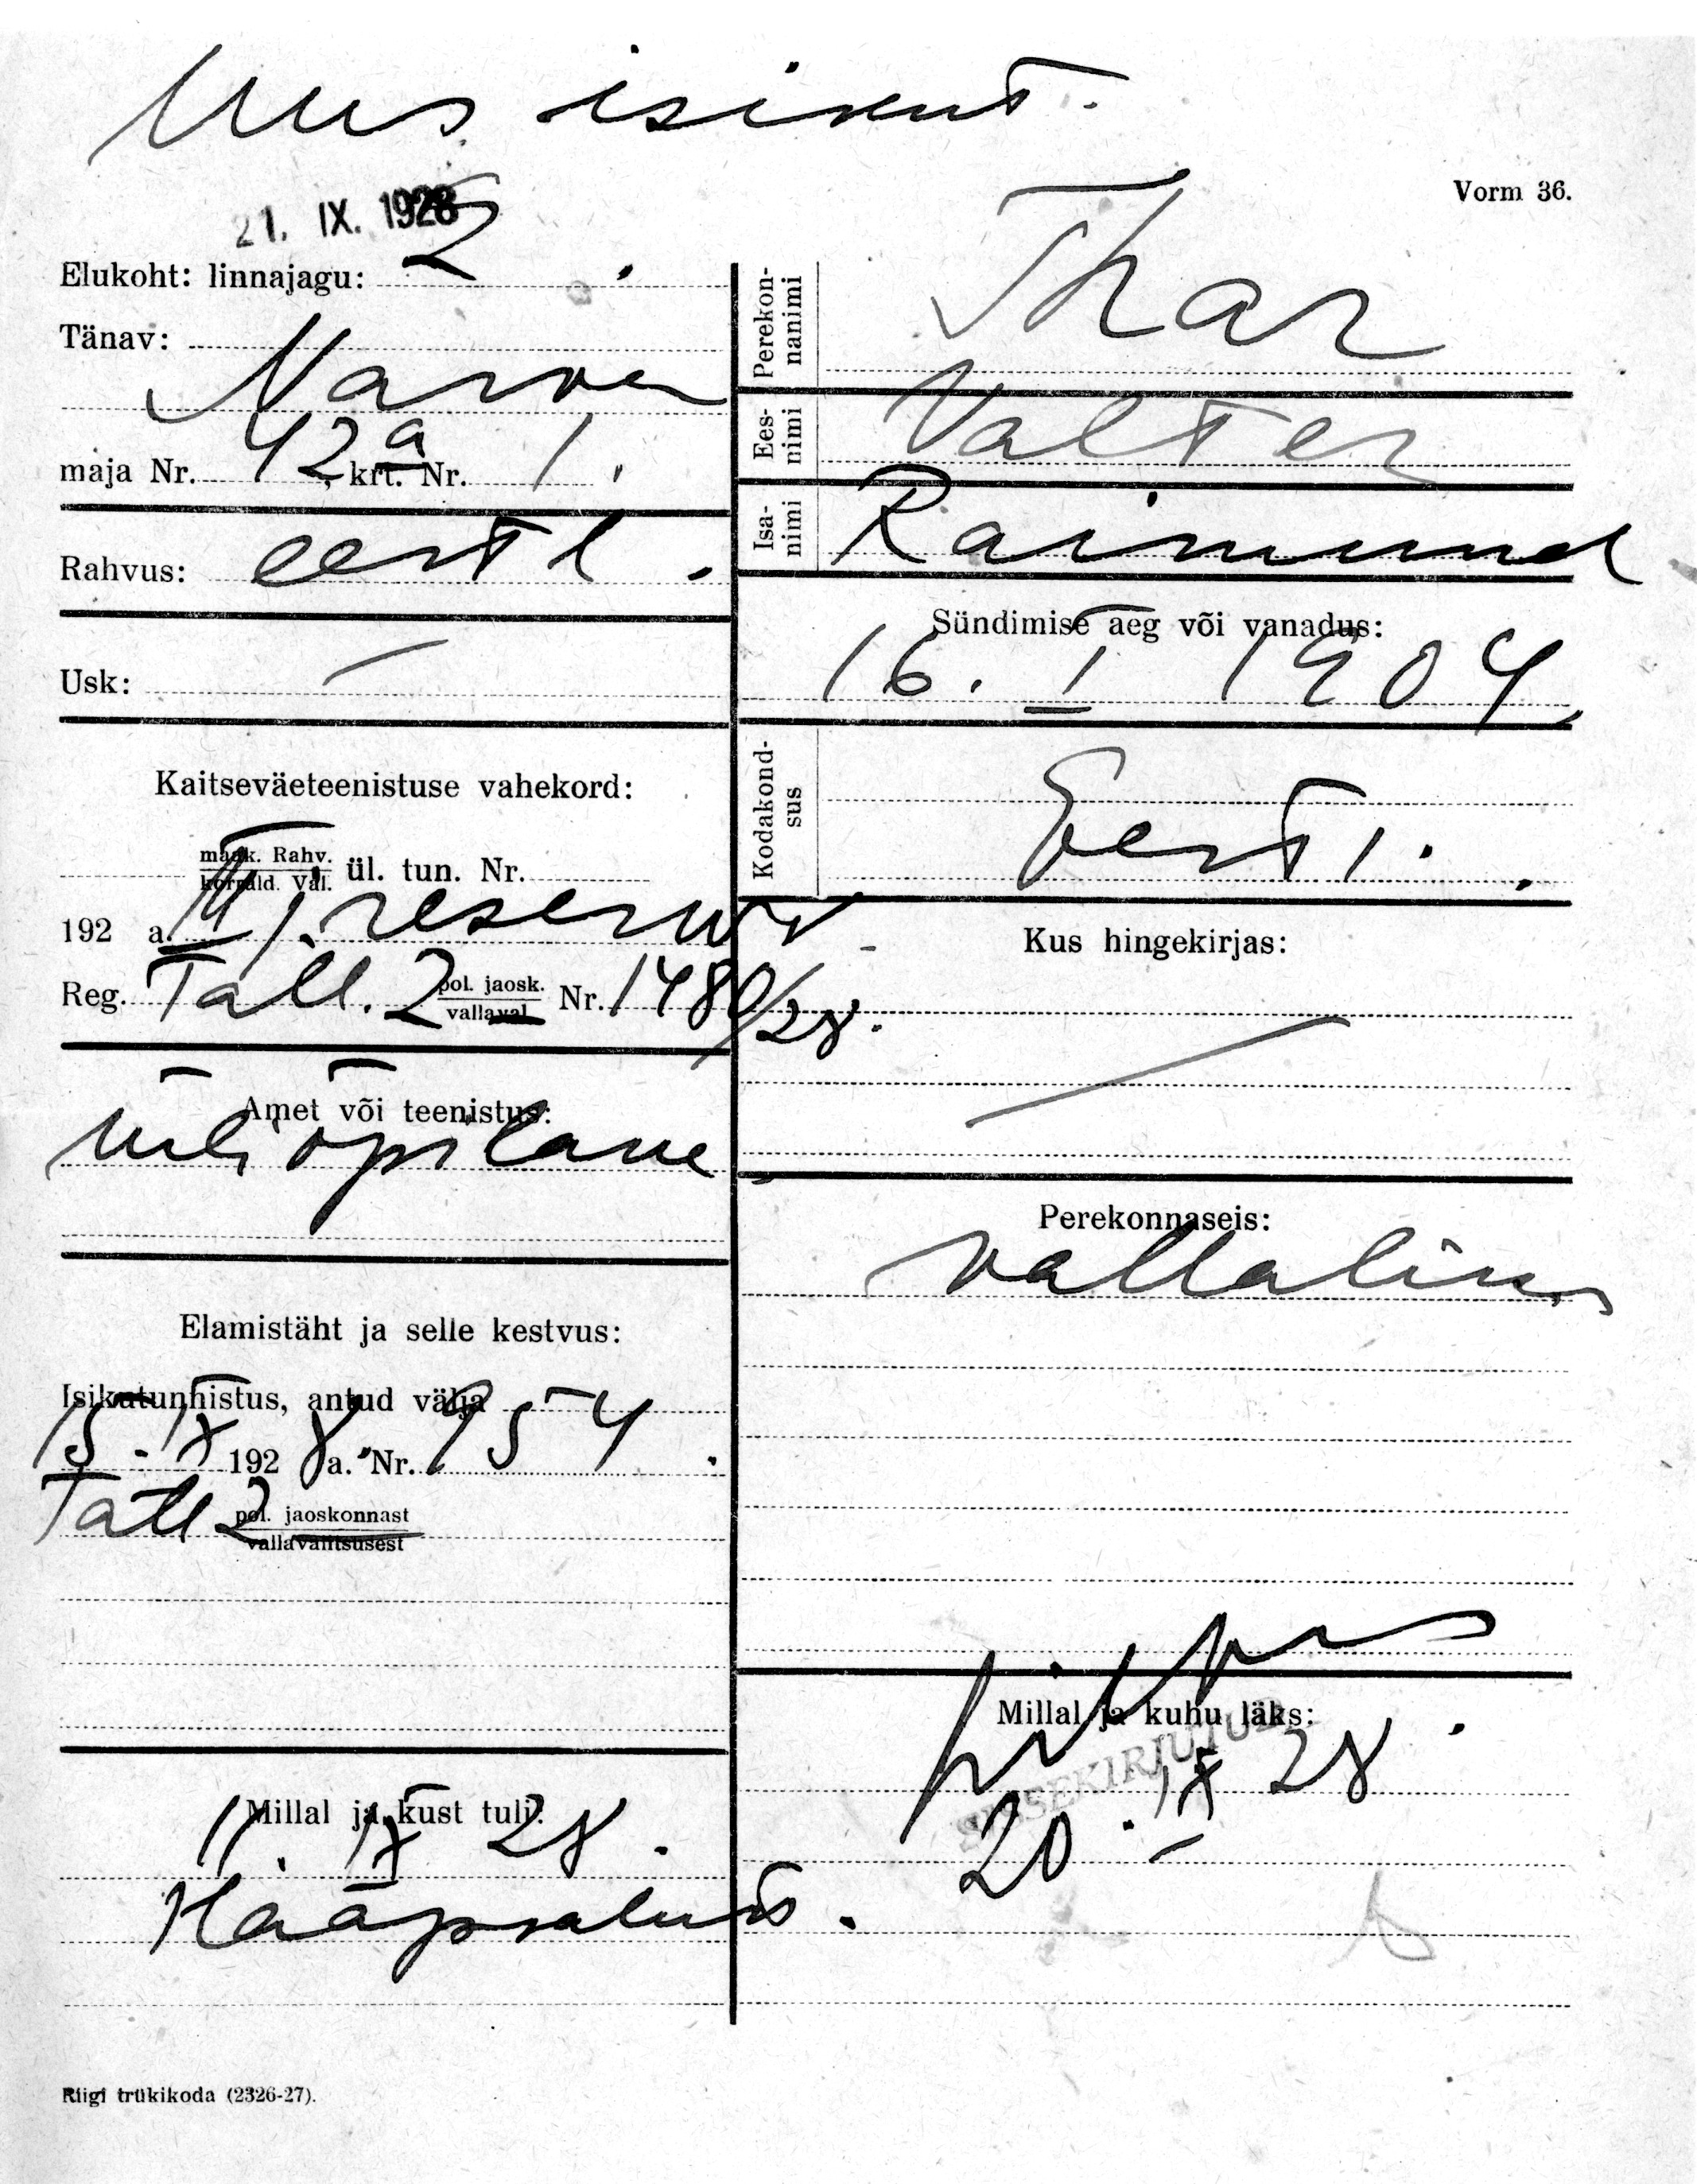 Uus isikut.
Vorm 36.
21. IX. 1928
Elukoht: linnajagu: 2.
Tänav:
Narva
maja Nr. 42a, krt. Nr. 1.
Rahvus: eesti.
Usk: —
Kaitseväeteenistuse vahekord:
maak. Rahv.
korrald. Val. ül. tun. Nr.
192 a. II j. reserv
Reg. Tall. 2 pol. jaosk.
vallaval. Nr. 1480/28.
Amet või teenistus:
üliõpilane
Elamistäht ja selle kestvus:
Isikutunnistus, antud välja
15. IX 1928 a. Nr. 954.
Tall 2 pol. jaoskonnast
vallavalitsusest
Millal ja kust tuli:
11. IX 28.
Haapsalust.
Perekon-
nanimi
Thar
Ees-
nimi
Valter
Isa-
nimi
Raimund
Sündimise aeg või vanadus:
16. I 1904
Kodakond-
sus
Eesti.
Kus hingekirjas:
—
Perekonnaseis:
vallaline
Millal ja kuhu läks:
SISSEKIRJUTUD
20. IX 28.
Riigi trükikoda (2326-27).